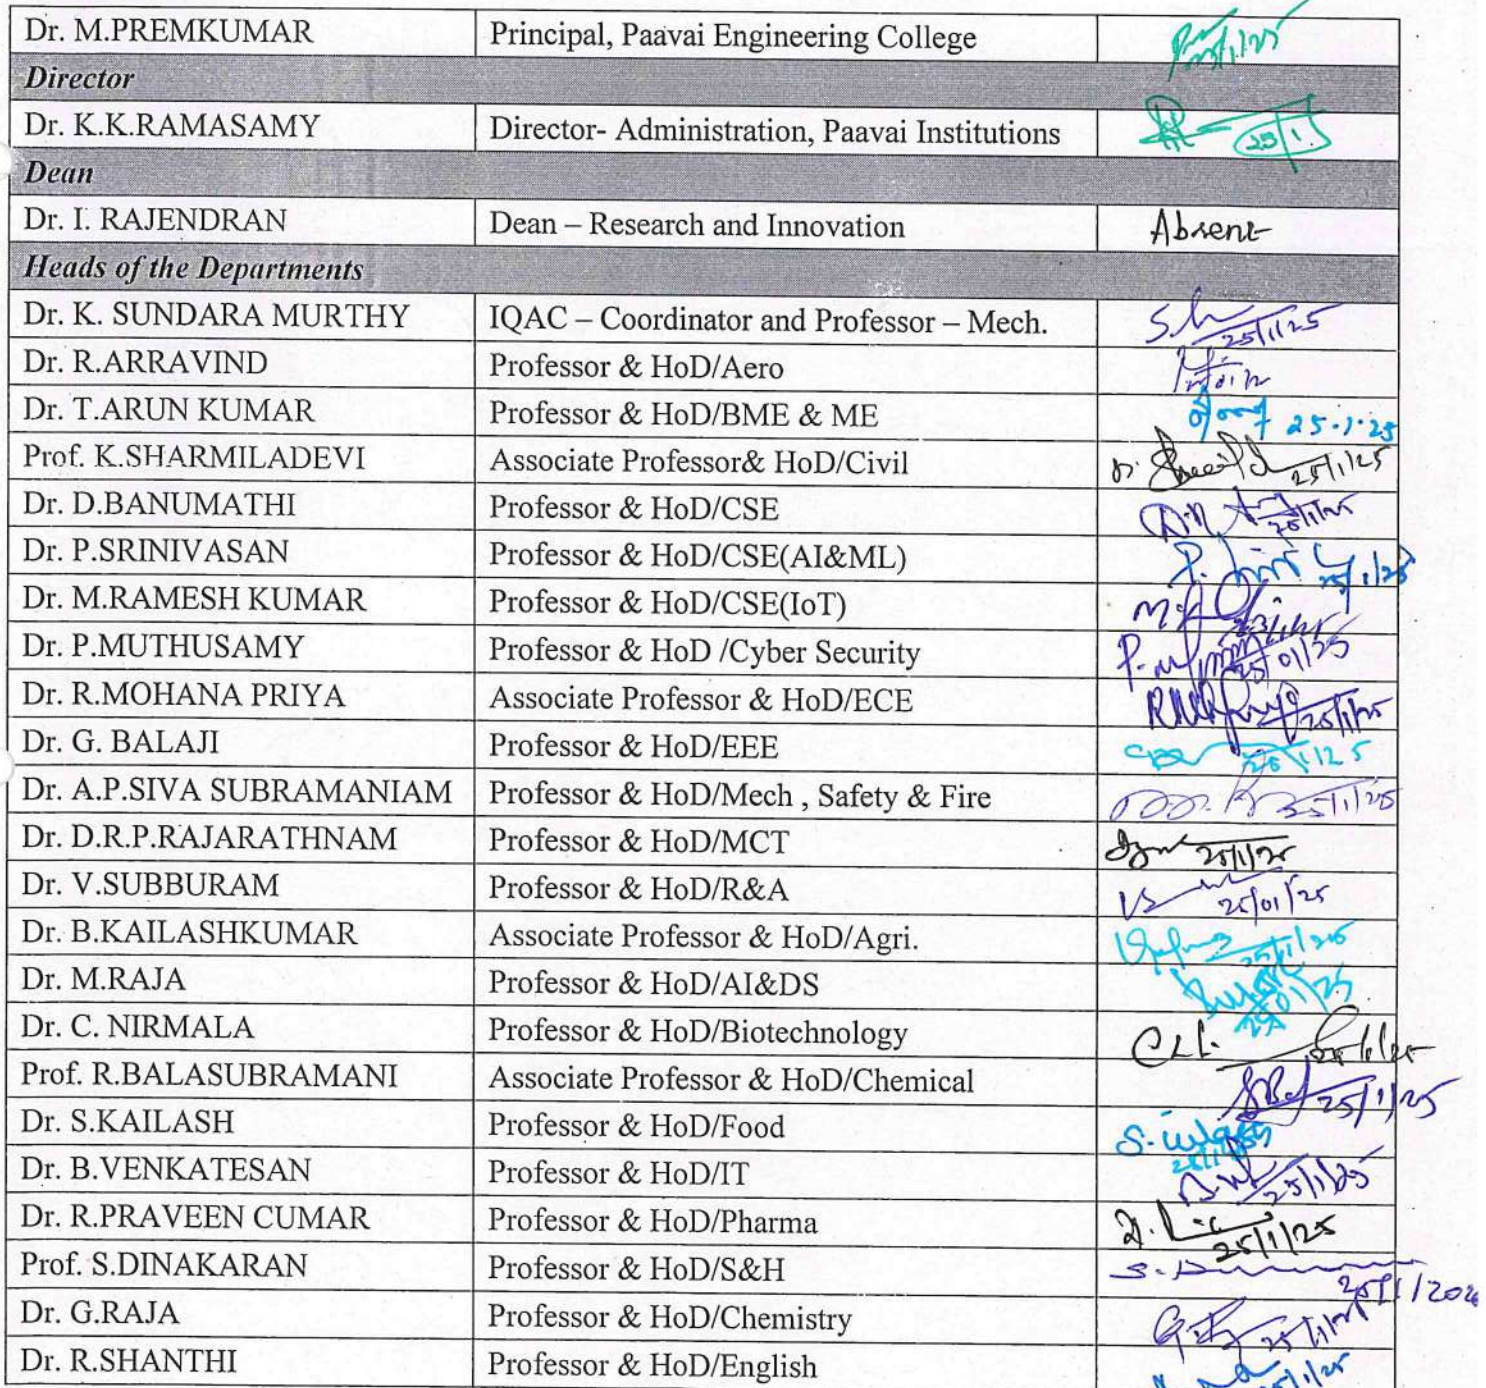 Dr. M.PREMKUMAR Principal, Paavai Engineering College 25/1/25
Director
Dr. K.K.RAMASAMY Director- Administration, Paavai Institutions 25/1
Dean
Dr. I. RAJENDRAN Dean – Research and Innovation Absent
Heads of the Departments
Dr. K. SUNDARA MURTHY IQAC – Coordinator and Professor – Mech. 25/1/25
Dr. R.ARRAVIND Professor & HoD/Aero
Dr. T.ARUN KUMAR Professor & HoD/BME & ME 25.1.25
Prof. K.SHARMILADEVI Associate Professor& HoD/Civil 25/1/25
Dr. D.BANUMATHI Professor & HoD/CSE 25/1/25
Dr. P.SRINIVASAN Professor & HoD/CSE(AI&ML) 25/1/25
Dr. M.RAMESH KUMAR Professor & HoD/CSE(IoT)
Dr. P.MUTHUSAMY Professor & HoD /Cyber Security 25/01/25
Dr. R.MOHANA PRIYA Associate Professor & HoD/ECE 25/1/25
Dr. G. BALAJI Professor & HoD/EEE
Dr. A.P.SIVA SUBRAMANIAM Professor & HoD/Mech , Safety & Fire 25/1/25
Dr. D.R.P.RAJARATHNAM Professor & HoD/MCT 25/1/25
Dr. V.SUBBURAM Professor & HoD/R&A 25/01/25
Dr. B.KAILASHKUMAR Associate Professor & HoD/Agri. 25/1/25
Dr. M.RAJA Professor & HoD/AI&DS
Dr. C. NIRMALA Professor & HoD/Biotechnology 25/1/25
Prof. R.BALASUBRAMANI Associate Professor & HoD/Chemical 25/1/25
Dr. S.KAILASH Professor & HoD/Food
Dr. B.VENKATESAN Professor & HoD/IT 25/1/25
Dr. R.PRAVEEN CUMAR Professor & HoD/Pharma 25/1/25
Prof. S.DINAKARAN Professor & HoD/S&H
Dr. G.RAJA Professor & HoD/Chemistry 25/1/25
Dr. R.SHANTHI Professor & HoD/English